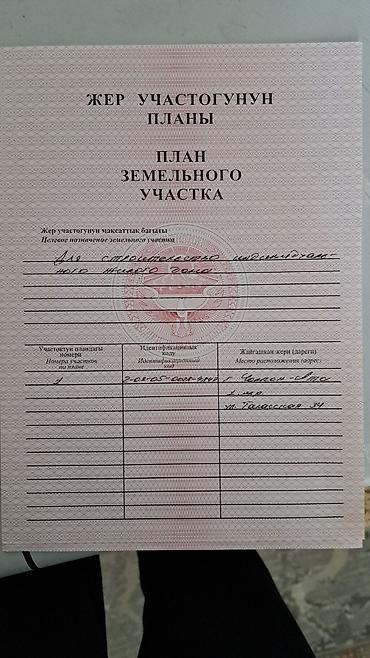 ЖЕР УЧАСТОГУНУН
ПЛАНЫ
ПЛАН
ЗЕМЕЛЬНОГО
УЧАСТКА
Жер участогунун максаттык багыты
Целевое назначение земельного участка
Для строительство индивидуаль-
ного жилого дома.
Участоктун пландагы номери
Номера участков на плане
Идентификациялык коду
Идентификационный код
Жайгашкан жери (дареги)
Место расположения (адрес)
1
г. Чолпон-Ата
ул. Таласская 34